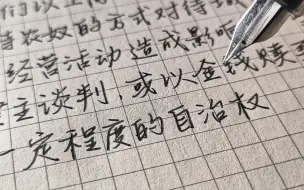 们以工
待农奴的方式对待
经营活动造成影响
主谈判，或以金钱赎
一定程度的自治权